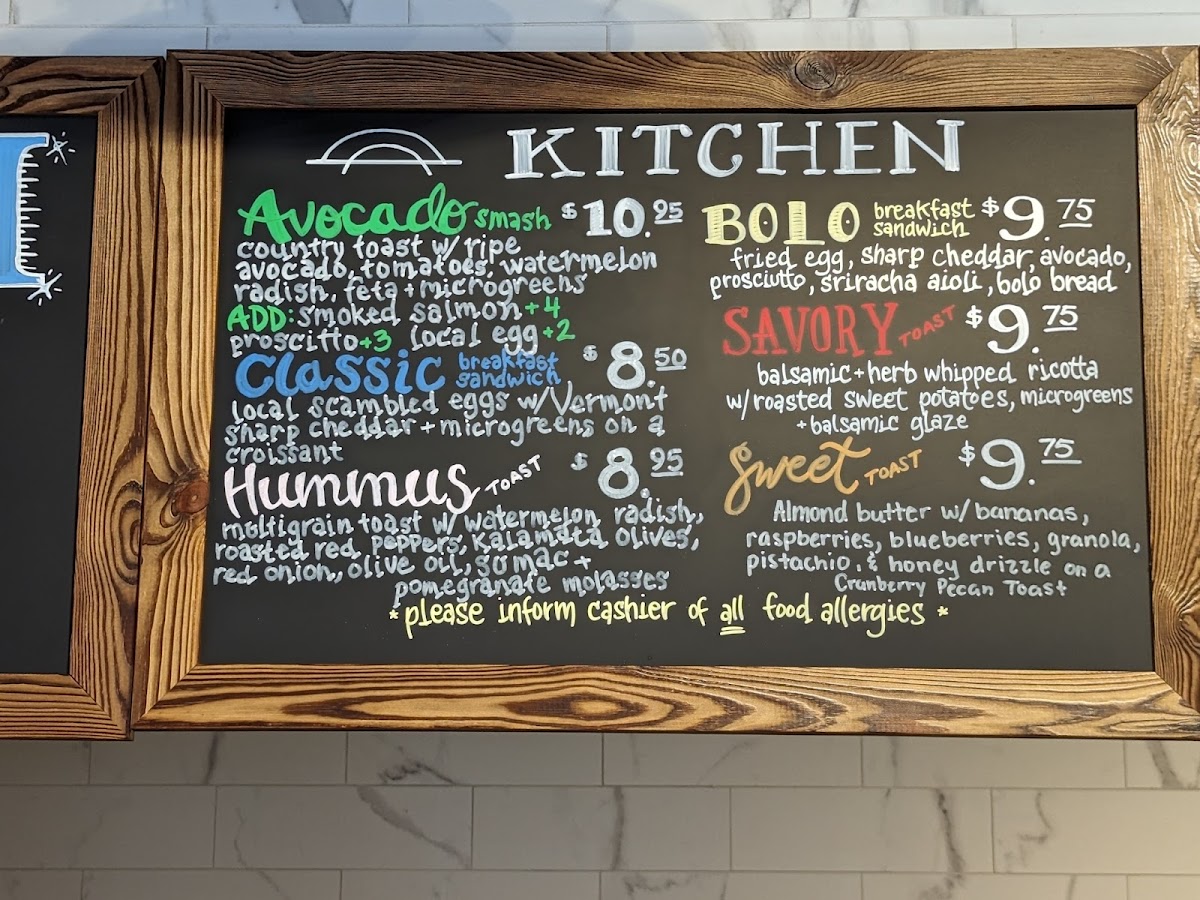 KITCHEN
Avocado smash $10.95
country toast w/ ripe
avocado, tomatoes, watermelon
radish, feta + microgreens
ADD: smoked salmon +4
proscitto +3 local egg +2
Classic breakfast sandwich $8.50
local scambled eggs w/Vermont
sharp cheddar + microgreens on a
croissant
Hummus TOAST $8.95
multigrain toast w/ watermelon radish,
roasted red, peppers, kalamata olives,
red onion, olive oil, sumac +
pomegranate molasses
BOLO breakfast sandwich $9.75
fried egg, sharp cheddar, avocado,
prosciutto, sriracha aioli, bolo bread
SAVORY TOAST $9.75
balsamic + herb whipped ricotta
w/ roasted sweet potatoes, microgreens
+ balsamic glaze
Sweet TOAST $9.75
Almond butter w/ bananas,
raspberries, blueberries, granola,
pistachio, & honey drizzle on a
Cranberry Pecan Toast
* please inform cashier of all food allergies *